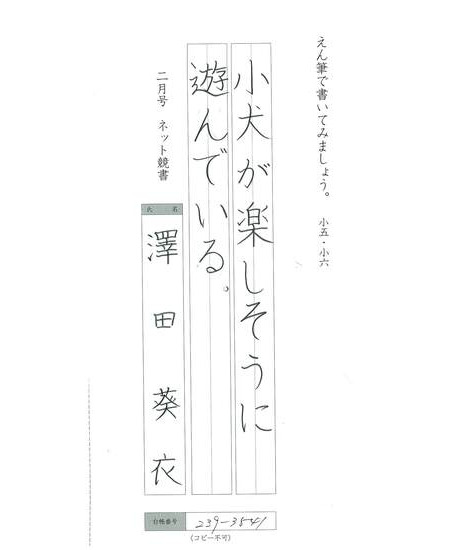 えん筆で書いてみましょう。 小五・小六
小犬が楽しそうに
遊んでいる。
二月号 ネット競書
氏 名
澤田葵衣
台帳番号 239-3541
(コピー不可)